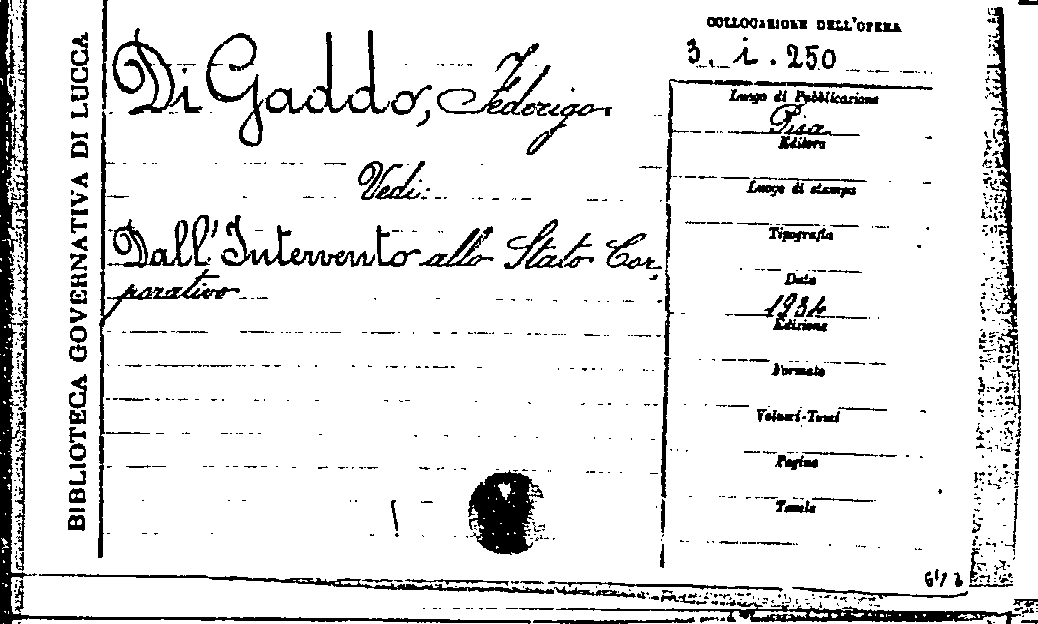 BIBLIOTECA GOVERNATIVA DI LUCCA
Di Gaddo, Federigo.
Vedi:
Dall'Intervento allo Stato Cor,
porativo
COLLOCAZIONE DELL'OPERA
3. i. 250
Luogo di Pubblicazione
Pisa
Editore
Luogo di stampa
Tipografia
Data
1934
Edizione
Formato
Volumi-Tomi
Pagine
Tavole